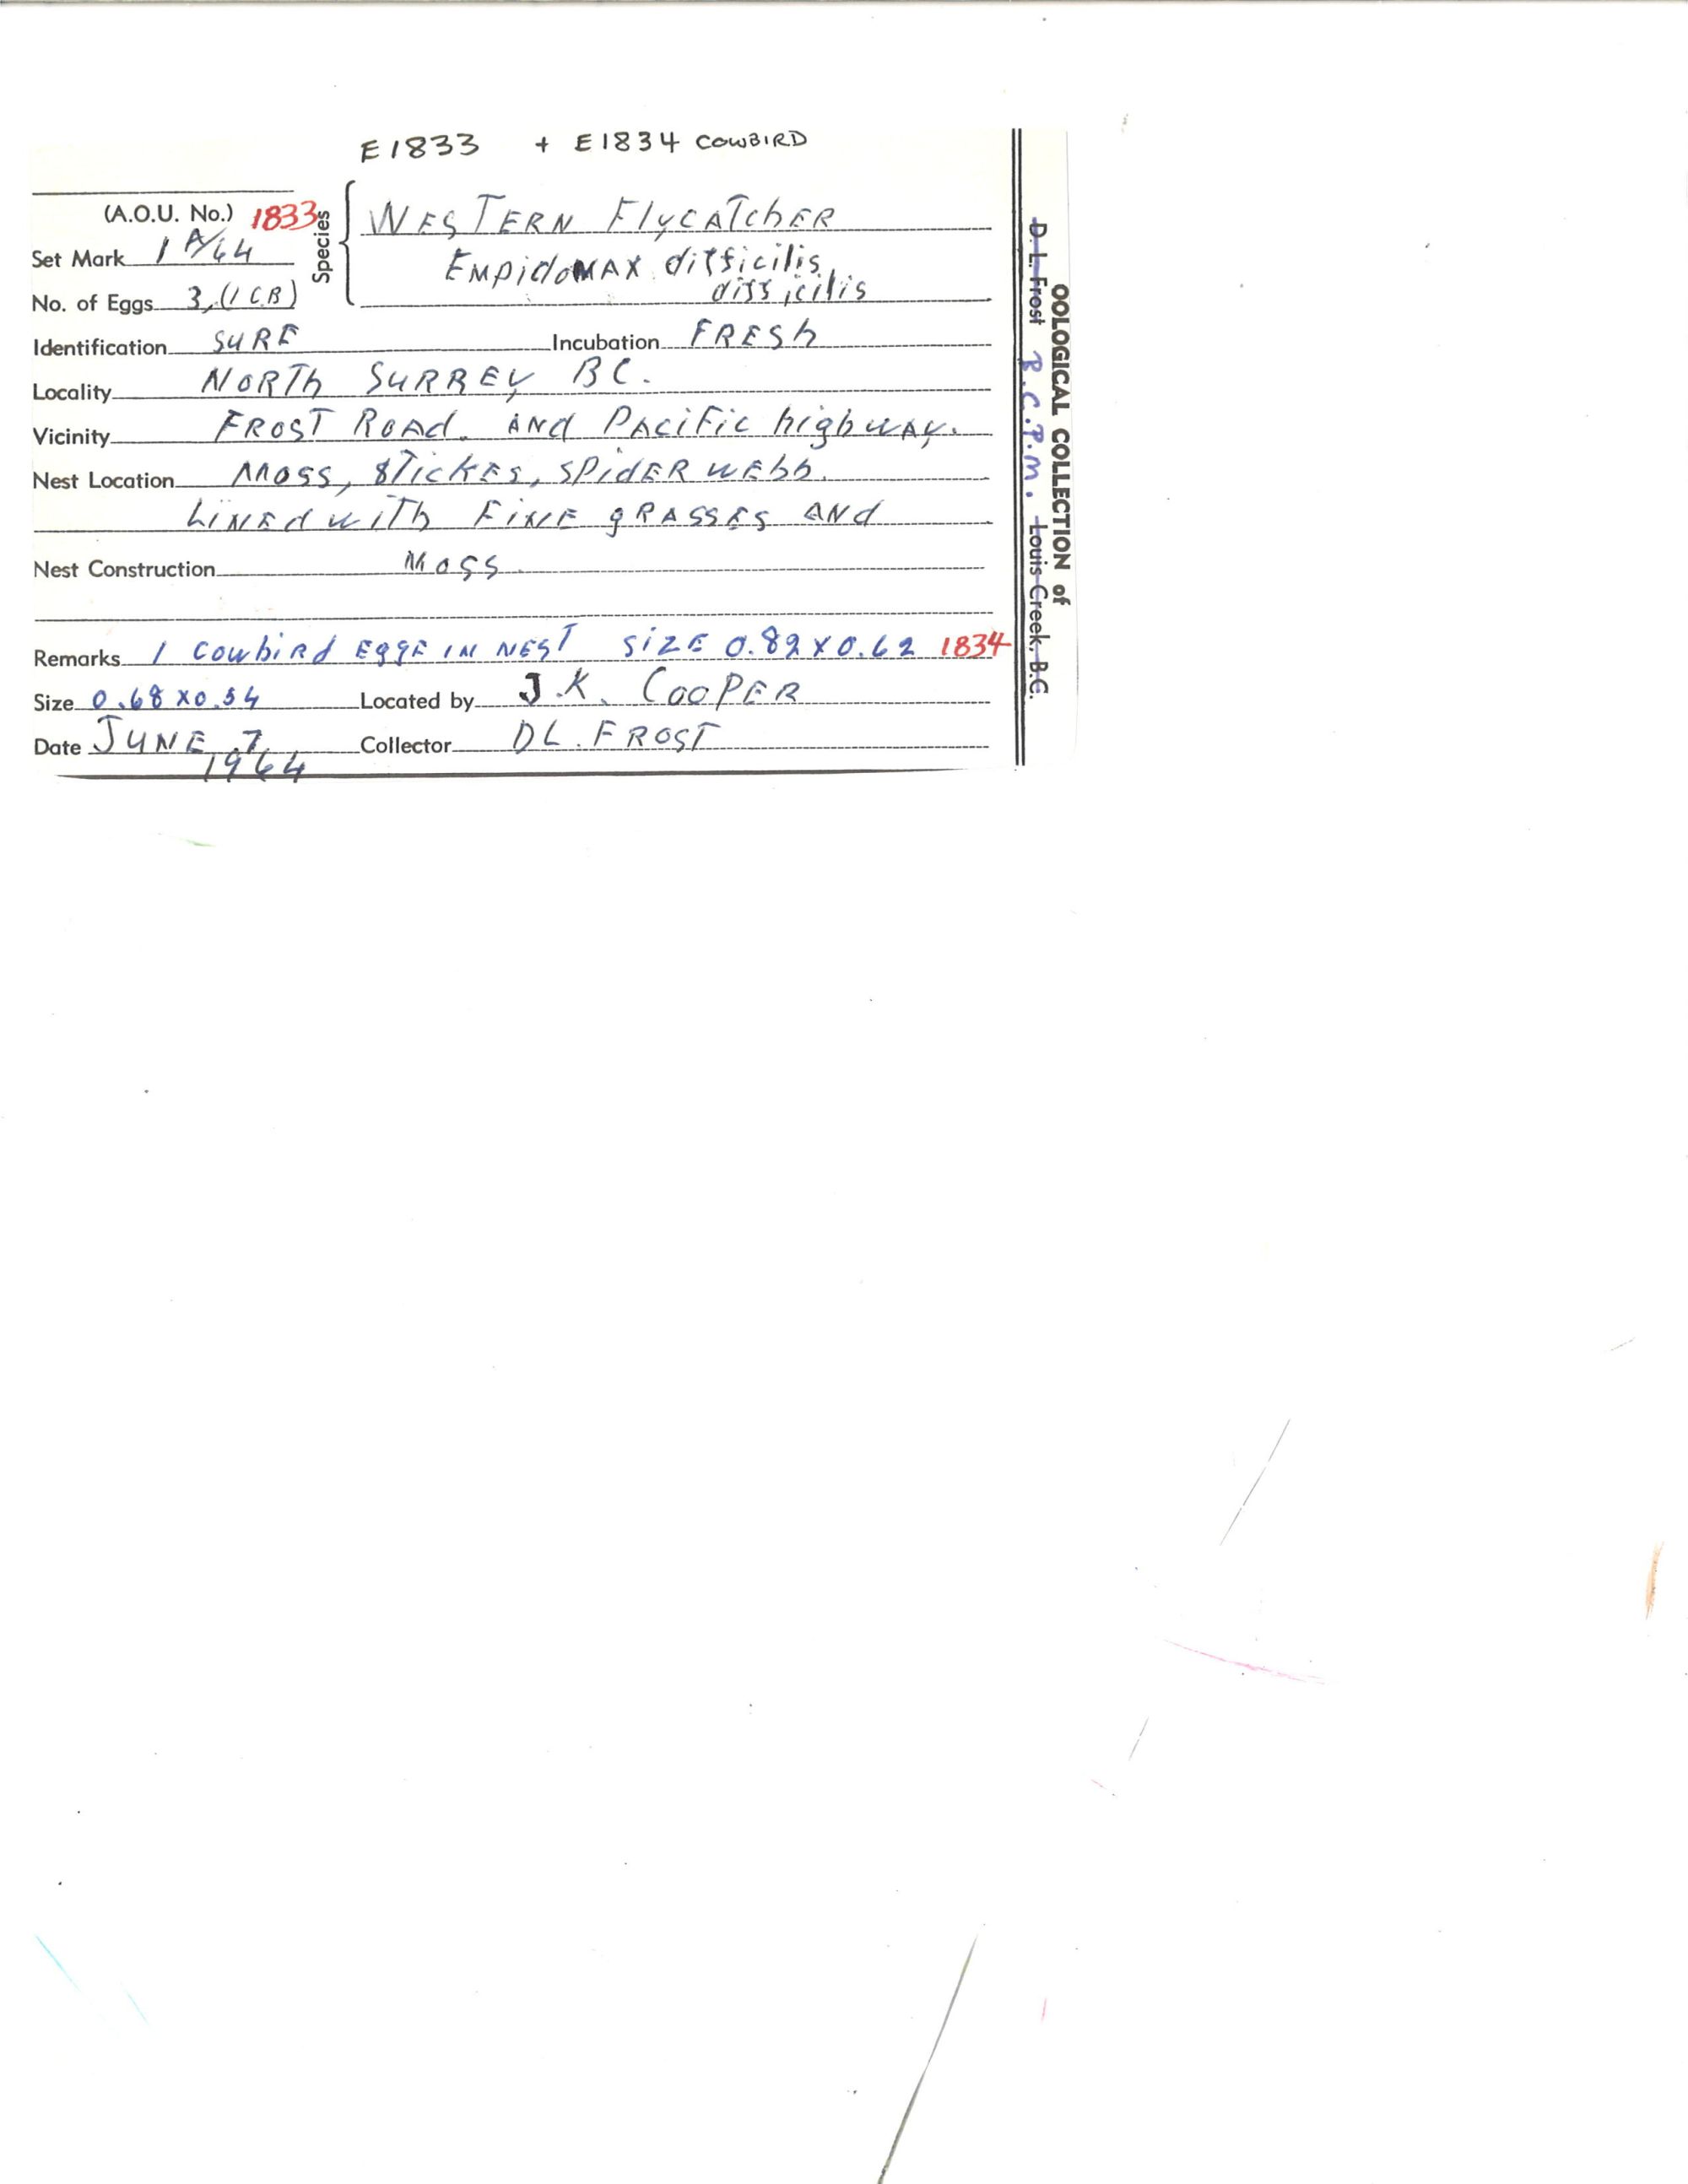 E1833 + E1834 COWBIRD
(A.O.U. No.) 1833
Species
WESTERN FlyCATChER
Set Mark 1 A/64
EMpidoNAX difficilis
difficilis
No. of Eggs 3, (1 C.B)
Identification SURE Incubation FRESh
Locality NORTh SURREY BC.
Vicinity FROST ROAd. ANd PACiFic highwAy.
Nest Location MOSS, STickES, SPidER WEbb.
LiNEd wiTh FiNE gRASSES ANd
Nest Construction MOSS.
Remarks 1 COwbiRd EggE IN NEST SiZE 0.82 X 0.62 1834
Size 0.68 X 0.54 Located by J.K. COOPER
Date JUNE 7, Collector DL. FROST
1964
OOLOGICAL COLLECTION of
D. L. Frost B.C.P.M. Louis Creek, B.C.